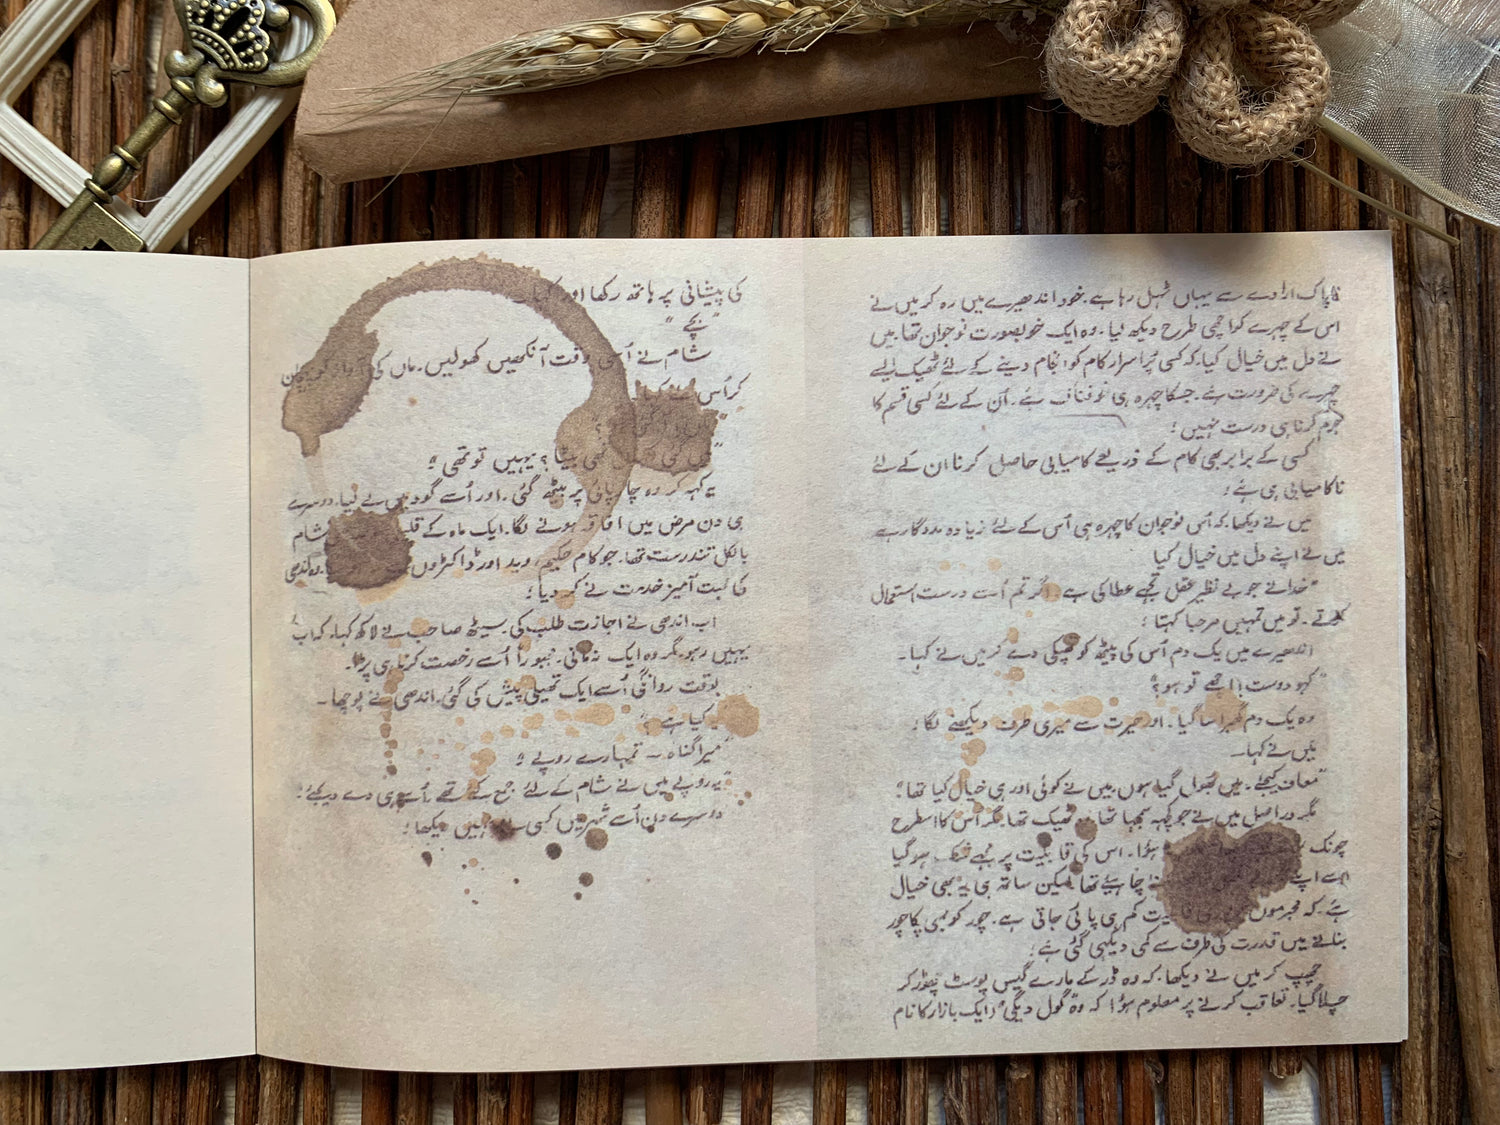 ناپاک ارادے سے یہاں ٹہل رہا ہے۔ خود اندھیرے میں رہ کر میں نے
اس کے چہرے کو اچھی طرح دیکھ لیا۔ وہ ایک خوبصورت نوجوان تھا۔ میں
نے دل میں خیال کیا۔ کہ کسی پُر اسرار کام کو انجام دینے کے لئے ٹھیک ایسے
چہرے کی ضرورت ہے۔ جسکا چہرہ ہی خوفناک ہے۔ اُن کے لئے کسی قسم کا
جُرم کرنا ہی درست نہیں؛
کسی کے برابر بھی کام کے ذریعے کامیابی حاصل کرنا ان کے لئے
ناکامیابی ہی ہے؛
میں نے دیکھا۔ کہ اُس نوجوان کا چہرہ ہی اُس کے لئے زیادہ مددگار ہے
میں نے اپنے دل میں خیال کیا
"خدا نے جو بے نظیر عقل تجھے عطا کی ہے۔ اگر تم اُسے درست استعمال
کرتے۔ تو میں تمہیں مرحبا کہتا؛
اندھیرے میں یک دم اُس کی پیٹھ کو تھپکی دے کر میں نے کہا۔
"کہو دوست! اچھے تو ہو؟"
وہ یک دم گھبرا سا گیا۔ اور حیرت سے میری طرف دیکھنے لگا؛
میں نے کہا۔
"معاف کیجئے۔ میں بھول گیا ہوں۔ میں نے کوئی اور ہی خیال کیا تھا؛
مگر دراصل میں نے جو کچھ سمجھا تھا۔ وہ ٹھیک تھا۔ مگر اُس کا اسطرح
چونک ہؤا۔ اس کی قابلیت پر مجھے شک ہو گیا
اسے اپنے چاہیئے تھا۔ لیکن ساتھ ہی یہ بھی خیال
ہے۔ کہ مجرموں قابلیت کم ہی پائی جاتی ہے۔ چور کو بھی پکا چور
بنانے میں قدرت کی طرف سے کمی دیکھی گئی ہے؛
چھپ کر میں نے دیکھا۔ کہ وہ ڈر کے مارے گیس پوسٹ چھوڑ کر
چلا گیا۔ تعاقب کرنے پر معلوم ہؤا کہ وہ "گول دیگی" (ایک بازار کا نام
کی پیشانی پر ہاتھ رکھا اور کہا۔
"بچے"
شام نے اُسی وقت آنکھیں کھولیں۔ ماں کی پہچان
کر اُس
نہیں بیٹا؟ یہیں تو تھی؛"
یہ کہہ کر وہ چارپائی پر بیٹھ گئی۔ اور اُسے گود میں لے لیا۔ دوسرے
ہی دن مرض میں افاقہ ہونے لگا۔ ایک ماہ کے شام
بالکل تندرست تھا۔ جو کام حکیم، وید اور ڈاکٹروں وہ اندھی
کی محبت آمیز خدمت نے کر دیا؛
اب اندھی نے اجازت طلب کی۔ سیٹھ صاحب نے لاکھ کہا۔ کہ اب
یہیں رہو۔ مگر وہ ایک نہ مانی۔ مجبوراً اُسے رخصت کرنا ہی پڑا۔
بوقت روانگی اُسے ایک تھیلی پیش کی گئی۔ اندھی نے پوچھا۔
یہ کیا ہے؟
"میرا گناہ — تمہارے روپے؛
"یہ روپے میں نے شام کے لئے جمع کئے تھے۔ اُسے ہی دے دیجئے؛
دوسرے دن اُسے شہر میں کسی نے نہیں دیکھا؛